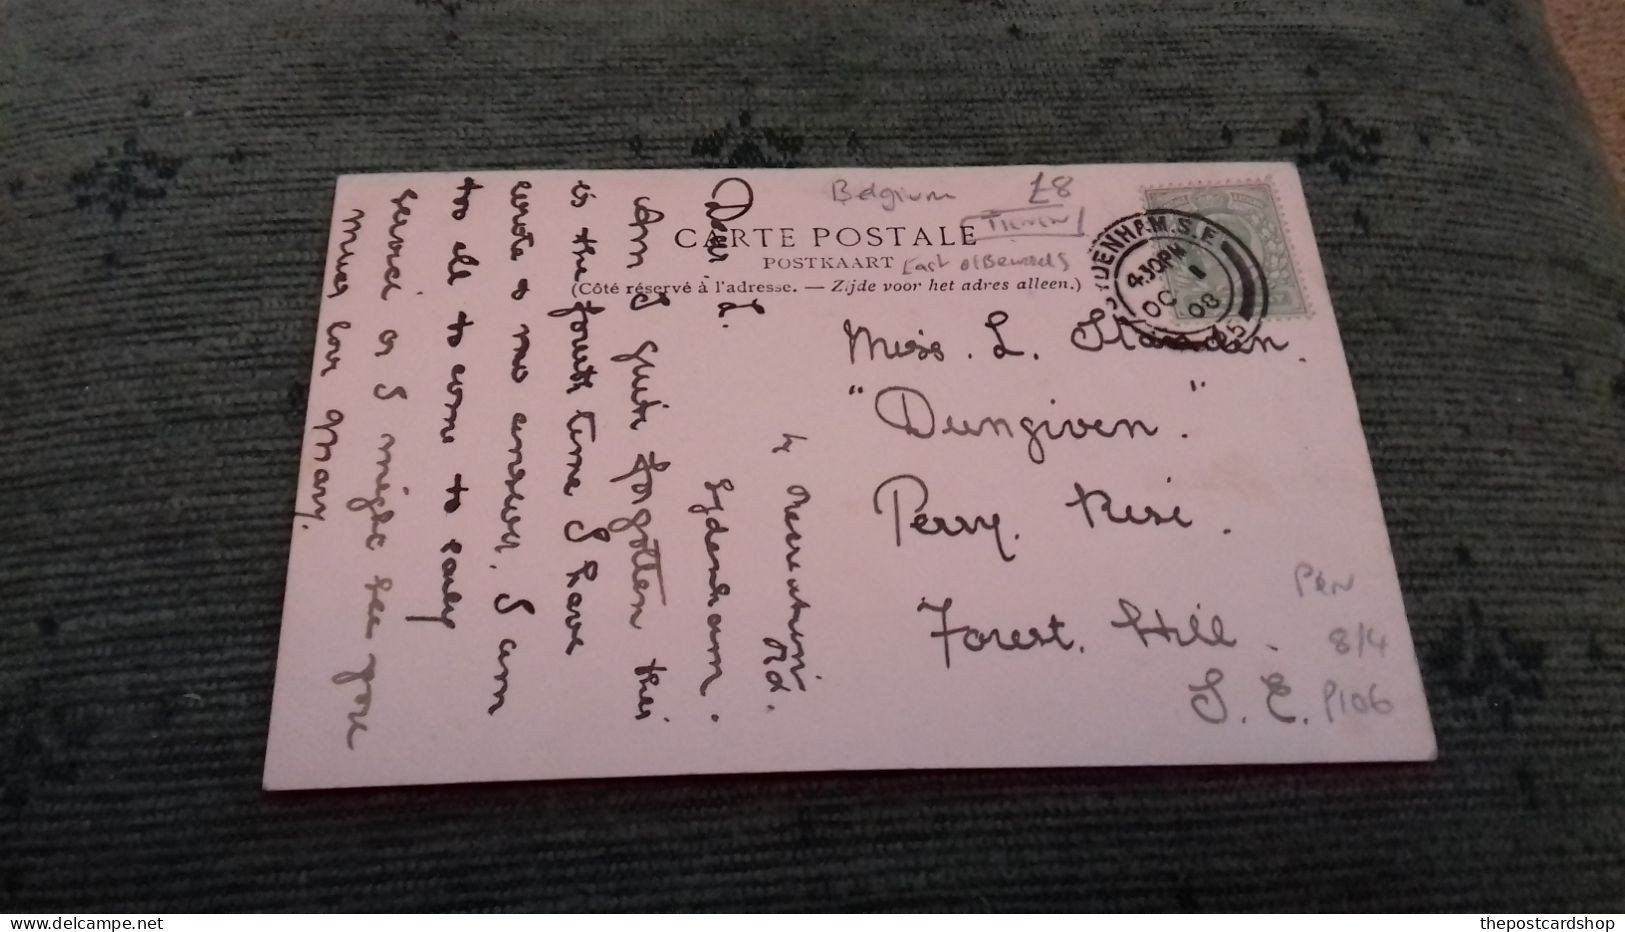 Belgium £8
TIENEN
CARTE POSTALE
POSTKAART East of Brussels
(Côté réservé à l'adresse. — Zijde voor het adres alleen.)
SYDENHAM.S.E.
4.30PM
1
OC 08
25
Miss. L.
"Dungiven".
Perry. Rise.
Forest. Hill.
S. E.
Pen
8/4
P106
Rd.
Sydenham.
Dear L.
Am I quite forgotten this
is the fourth time I have
wrote & no answer. I am
too ill to come to early
service or I might see you
Much love
delcampe.net
thepostcardshop